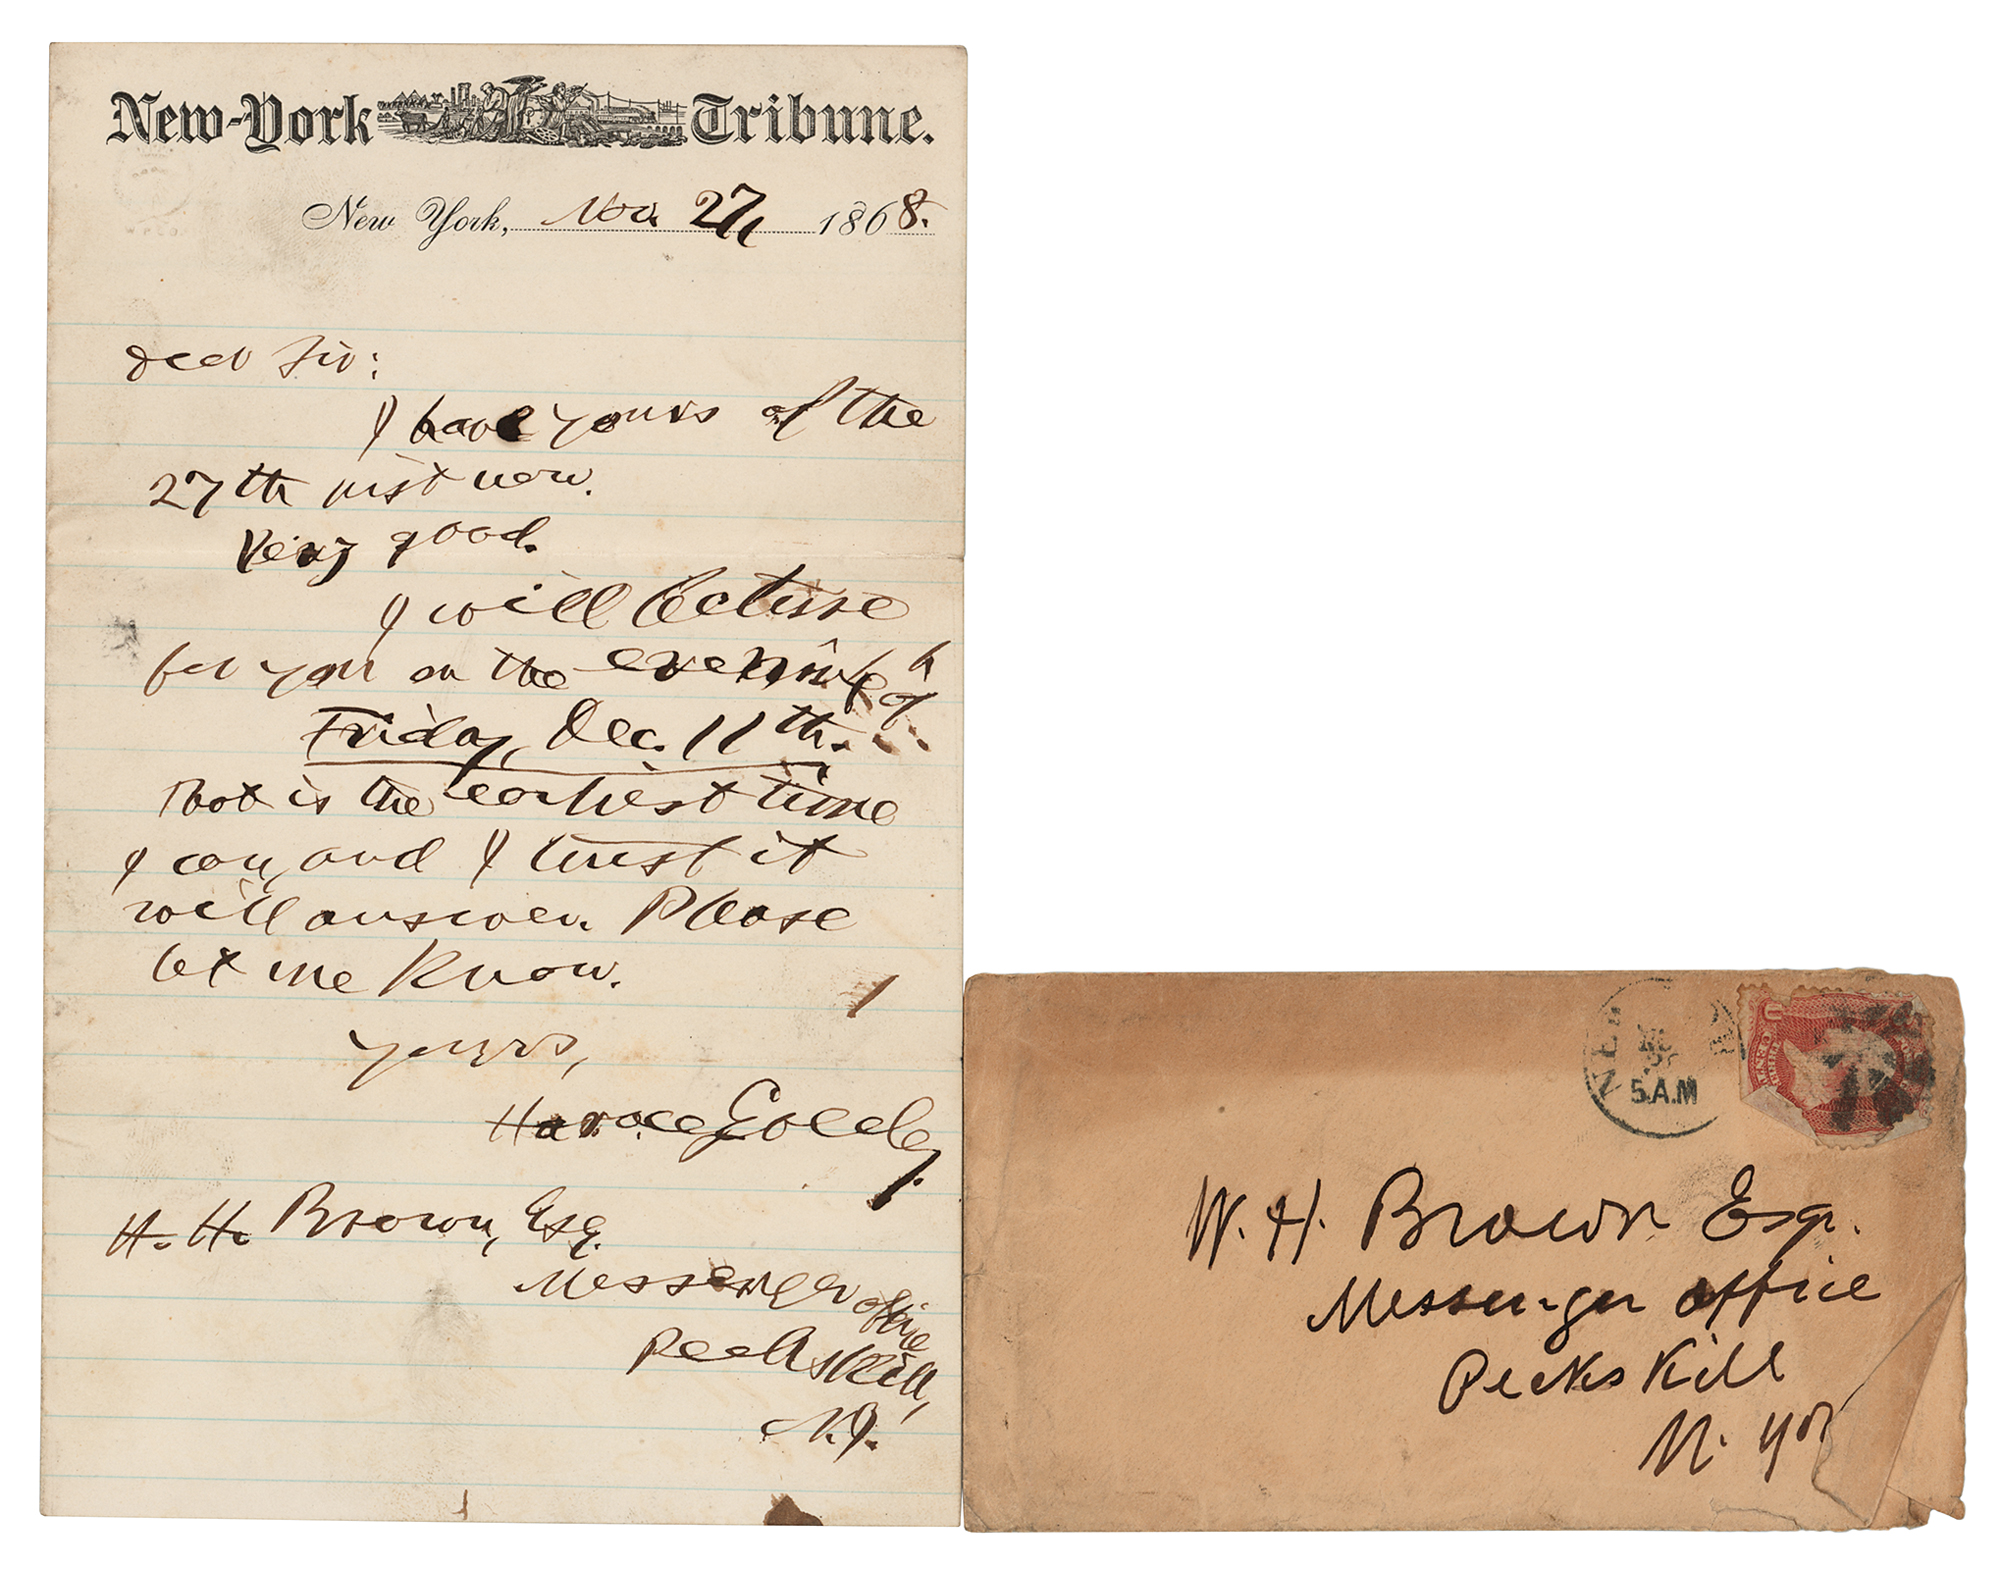 New-York Tribune.
New York, Nov. 27, 1868.
Dear Sir:
I have yours of the
27th just now.
Very good.
I will lecture
for you on the evening of
Friday, Dec. 11th.
That is the earliest time
I can, and I trust it
will answer. Please
let me know.
Yours,
Horace Greeley.
W. H. Brown, Esq.
Messenger office
Peekskill,
N.Y.
NEW
5.A.M
U
W. H. Brown Esqr.
Messenger office
Peekskill
N. Yor